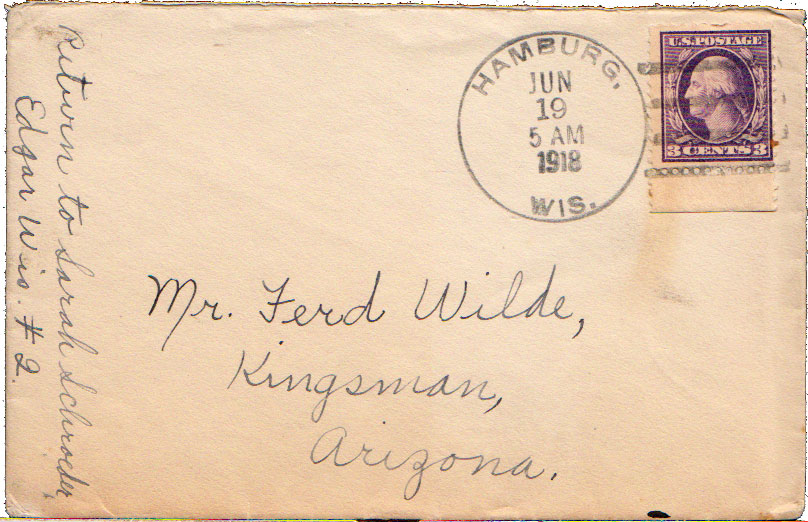 Return to Sarah Schroeder
Edgar Wis. # 2.
HAMBURG,
JUN
19
5 AM
1918
WIS.
U.S. POSTAGE
3 CENTS 3
Mr. Ferd Wilde,
Kingsman,
Arizona.